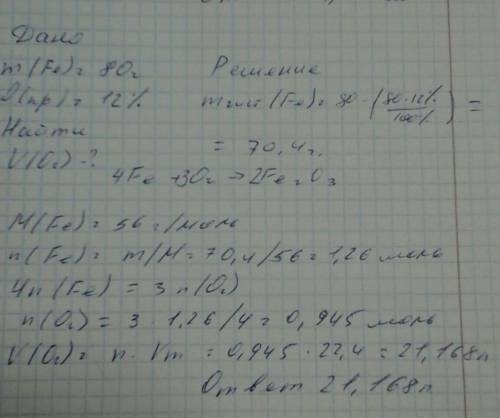 Дано
m(Fe)= 80г Решение
(пр)= 12% m чист (Fe)= 80 - (80·12% / 100%) =
Найти = 70,4 г.
V(O₂)-?
4Fe +3O₂ → 2Fe₂O₃
M(Fe)= 56 г/моль
n(Fe)= m/M = 70,4/56 = 1,26 моль
4n(Fe) = 3n(O₂)
n(O₂)= 3·1,26/4 = 0,945 моль
V(O₂)= n·Vm = 0,945·22,4 = 21,168л
Ответ 21,168л